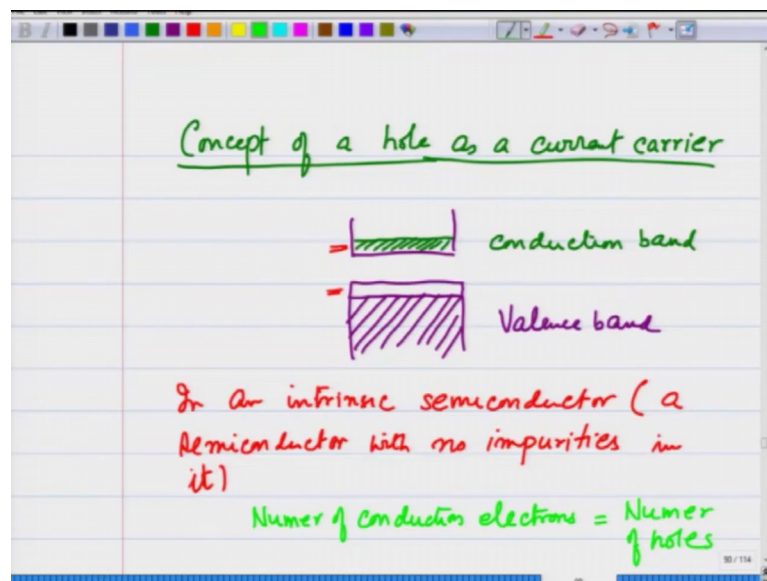 Concept of a hole as a current carrier
conduction band
Valence band
In an intrinsic semiconductor (a
semiconductor with no impurities in
it)
Numer of conduction electrons = Numer
of holes
50/114